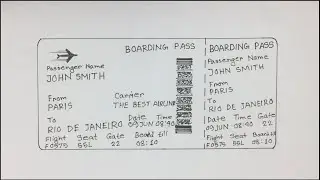 BOARDING PASS
Passenger Name
JOHN SMITH
From Carrier
PARIS THE BEST AIRLINE
To Date Time
RIO DE JANEIRO 09JUN 08:40
Flight Seat Gate Board till
F0575 55L 22 08:10
BOARDING PASS
Passenger Name
JOHN SMITH
From
PARIS
To
RIO DE JANEIRO
Date Time
09JUN 08:40
Flight Seat Gate Board till
F0575 55L 22 08:10